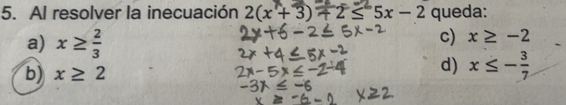 5. Al resolver la inecuación 2(x + 3) + 2 ≤ 5x − 2 queda:
a) x ≥ 2/3
b) x ≥ 2
2x+6-2≤ 5x-2
2x+4 ≤ 5x-2
2x-5x ≤ -2-4
-3x ≤ -6
x ≥ -6-2 x≥2
c) x ≥ −2
d) x ≤ − 3/7